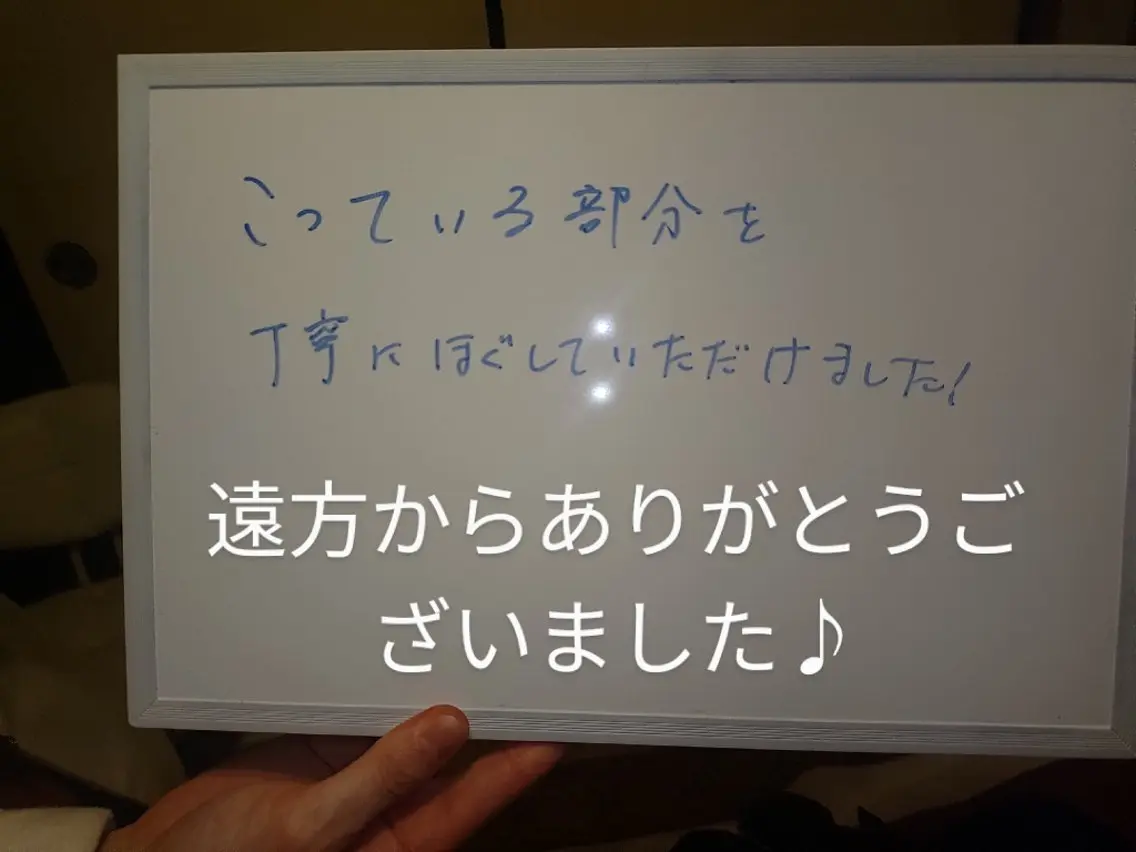 こっている部分を
丁寧にほぐしていただけました!
遠方からありがとうご
ざいました♪